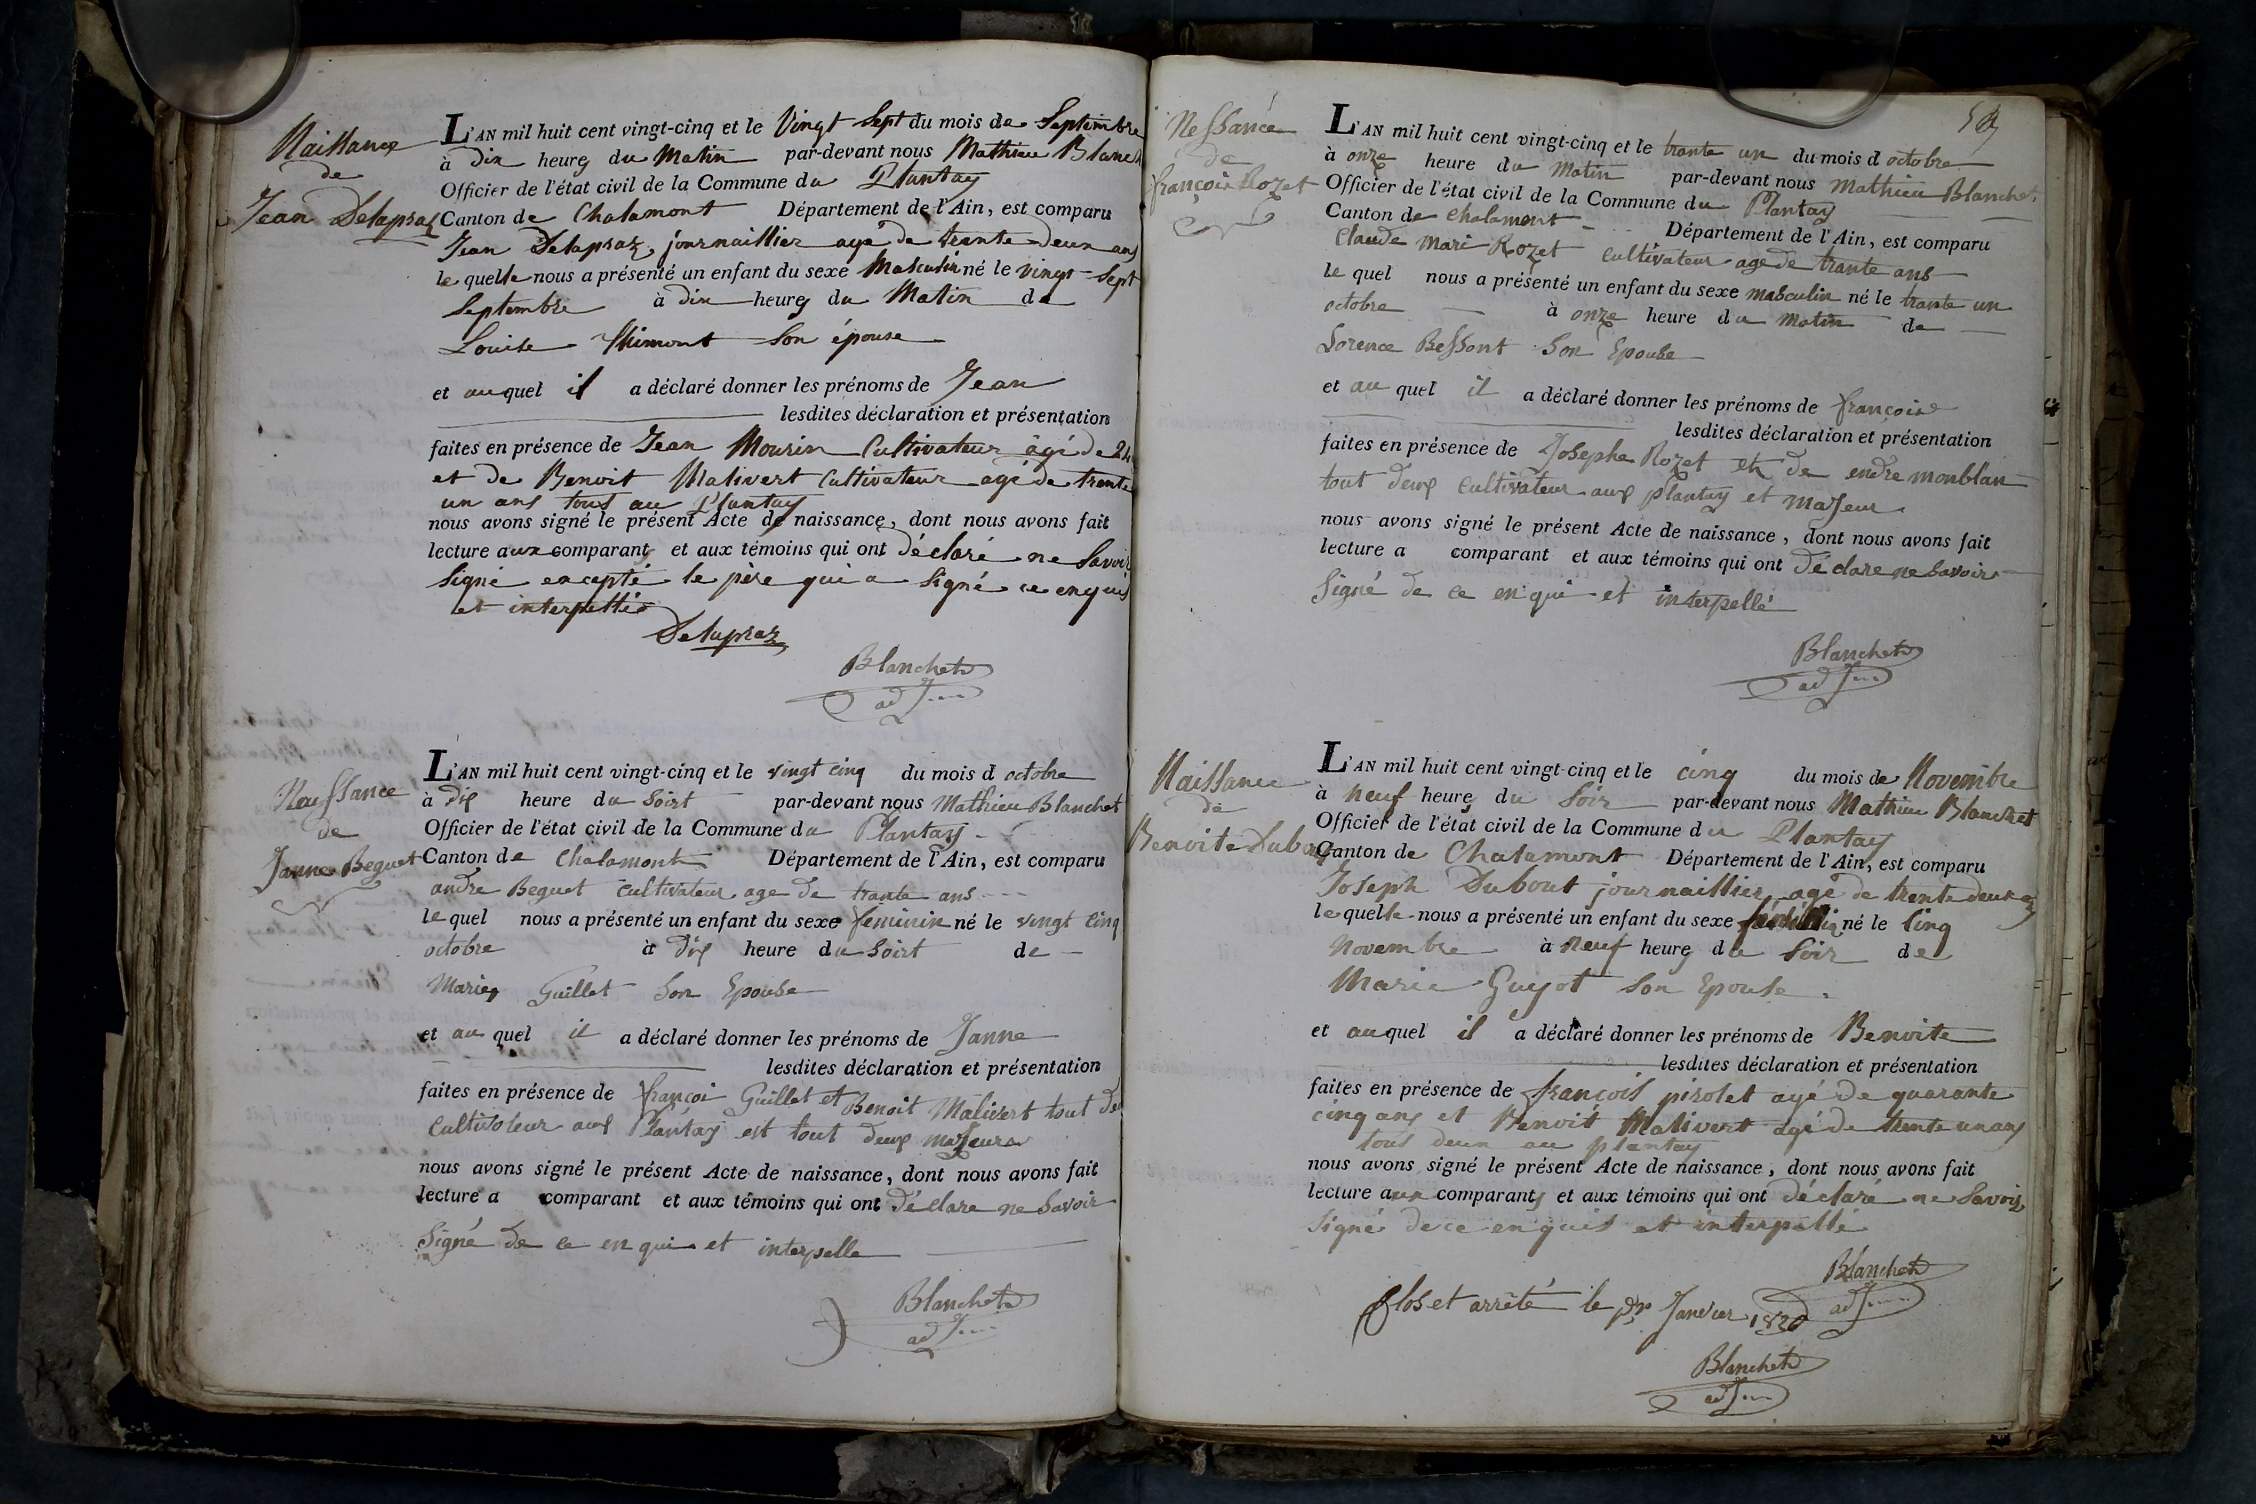 Naissance
de
Jean Delapraz
L'AN mil huit cent vingt-cinq et le Vingt Sept du mois de Septembre
à dix heures du Matin par-devant nous Mathieu Blanch
Officier de l'état civil de la Commune du Plantay
Canton de Chalamont Département de l'Ain, est comparu
Jean Delapraz, journaillier agé de trente deux ans
le quelle nous a présenté un enfant du sexe Masculin né le vingt-Sept
Septembre à dix heures du Matin de
Louise Thimont Son épouse
et auquel il a déclaré donner les prénoms de Jean
lesdites déclaration et présentation
faites en présence de Jean Mourin Cultivateur âgé de 24
et de Benoit Malivert Cultivateur agé de trente
un ans tous au Plantay
nous avons signé le présent Acte de naissance, dont nous avons fait
lecture aux comparants et aux témoins qui ont déclaré ne Savoir
Signé excepté le père qui a Signé ce enquis
et interpellé
Delapraz
Blanchet
adj
Naissance
de
Janne Beguet
L'AN mil huit cent vingt-cinq et le vingt cinq du mois d octobre
à dix heure du Soirt par-devant nous Mathieu Blanchet
Officier de l'état civil de la Commune du Plantay
Canton de Chalamont Département de l'Ain, est comparu
andre Beguet cultivateur age de trante ans
le quel nous a présenté un enfant du sexe feminin né le vingt cinq
octobre à dix heure du Soirt de
Marie Guillet Son Epouse
et au quel il a déclaré donner les prénoms de Janne
lesdites déclaration et présentation
faites en présence de françoi Guillet et Benoit Malivert tout de
Cultivoteur aux Plantay est tout deux majeur
nous avons signé le présent Acte de naissance, dont nous avons fait
lecture a comparant et aux témoins qui ont déclare ne Savoir
Signé de ce en qui et interpelle
Blanchet
adj
Nessance
de
françois Rozet
L'AN mil huit cent vingt-cinq et le trante un du mois d octobre
à onze heure du Matin par-devant nous Mathieu Blanchet
Officier de l'état civil de la Commune du Plantay
Canton de Chalamont Département de l'Ain, est comparu
Claude Mari Rozet Cultivateur age de trante ans
le quel nous a présenté un enfant du sexe masculin né le trante un
octobre à onze heure du Matin de
Lorence Bessont Son Epouse
et au quel il a déclaré donner les prénoms de françois
lesdites déclaration et présentation
faites en présence de Josephe Rozet et de endre monblan
tout deux Cultivateur aux plantay et majeur
nous avons signé le présent Acte de naissance, dont nous avons fait
lecture a comparant et aux témoins qui ont déclare ne Savoir
Signé de ce en qui et interpellé
Blanchet
adj
Naissance
de
Benoite Dubout
L'AN mil huit cent vingt-cinq et le cinq du mois de Novembre
à neuf heures du Soir par-devant nous Mathieu Blanchet
Officier de l'état civil de la Commune du Plantay
Canton de Chalamont Département de l'Ain, est comparu
Joseph Dubout journaillier, agé de trente deux
le quelle nous a présenté un enfant du sexe né le Cinq
Novembre à neuf heures du Soir de
Marie Guyot Son Epouse
et auquel il a déclaré donner les prénoms de Benoite
lesdites déclaration et présentation
faites en présence de françois pirolet agé de quarante
cinq ans et Benoit Malivert agé de trente un ans
tous deux au plantay
nous avons signé le présent Acte de naissance, dont nous avons fait
lecture aux comparants et aux témoins qui ont déclaré ne Savoir
Signé de ce enquis et interpellé
Blanchet
adj
Clos et arrêté le pr Janvier 1826
Blanchet
adj